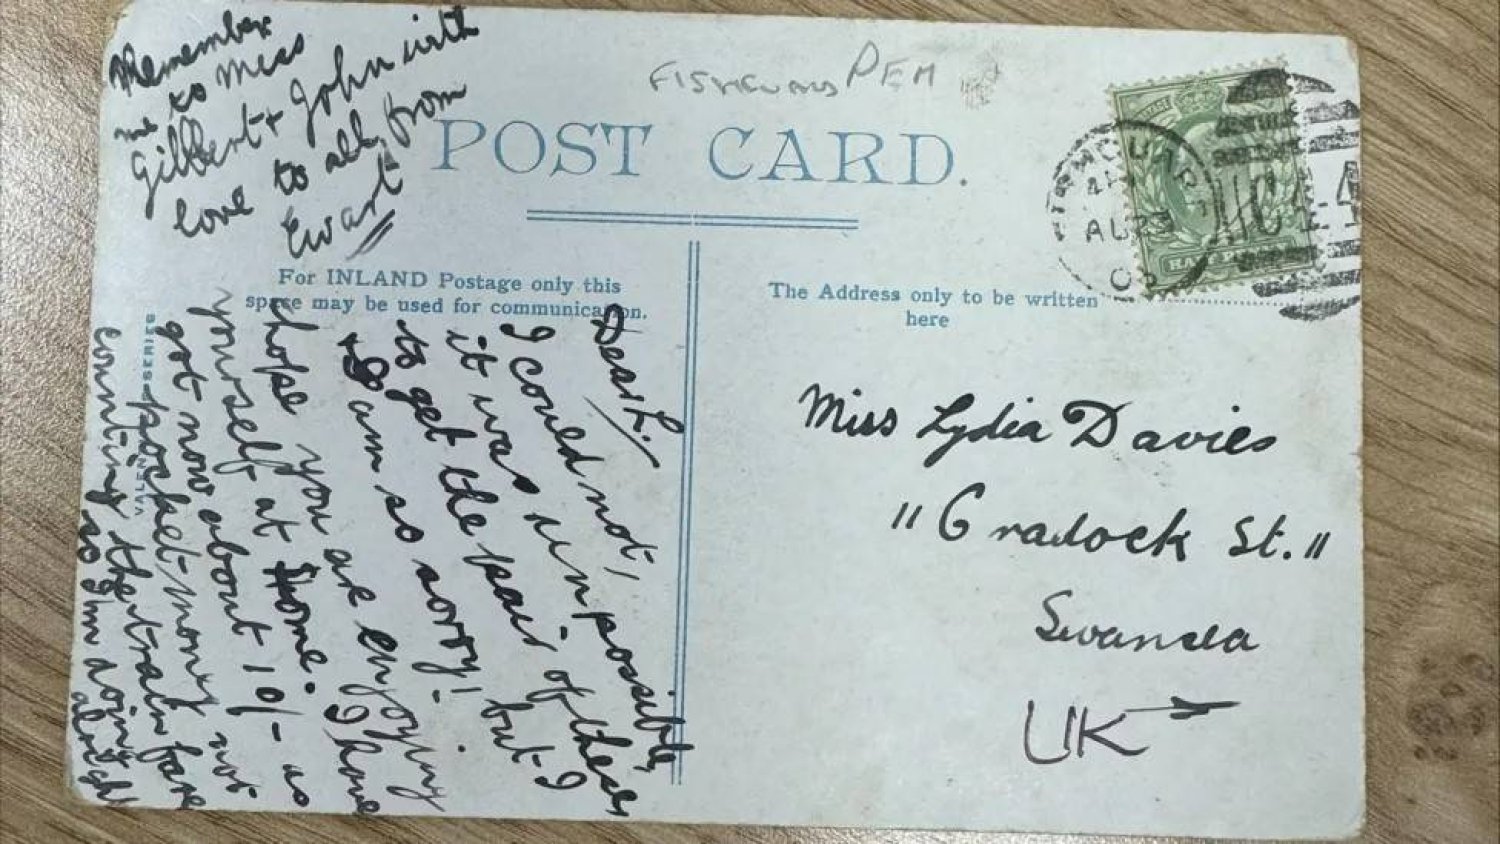 FISHGUARD PEM
POST CARD.
For INLAND Postage only this
space may be used for communication.
The Address only to be written
here
FISHGUARD
AU 23
03
HALFPENNY
Miss Lydia Davies
"Cradock St."
Swansea
UK
Dear L.
I could not,
it was impossible,
to get the pair of these
& I am so sorry! but I
hope you are enjoying
yourself at Home. I have
got now about 10/- as
pocket money not
counting the train fare
so I'm doing
alright
Remember
me to Miss
Gilbert & John with
love to all, from
Ewart
VALENTINES SERIES